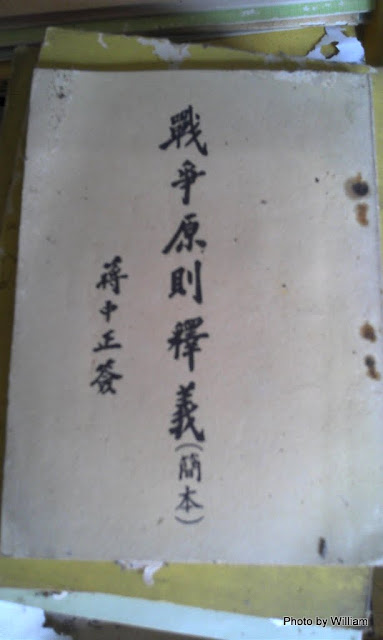 戰爭原則釋義(簡本)
蔣中正簽
Photo by William